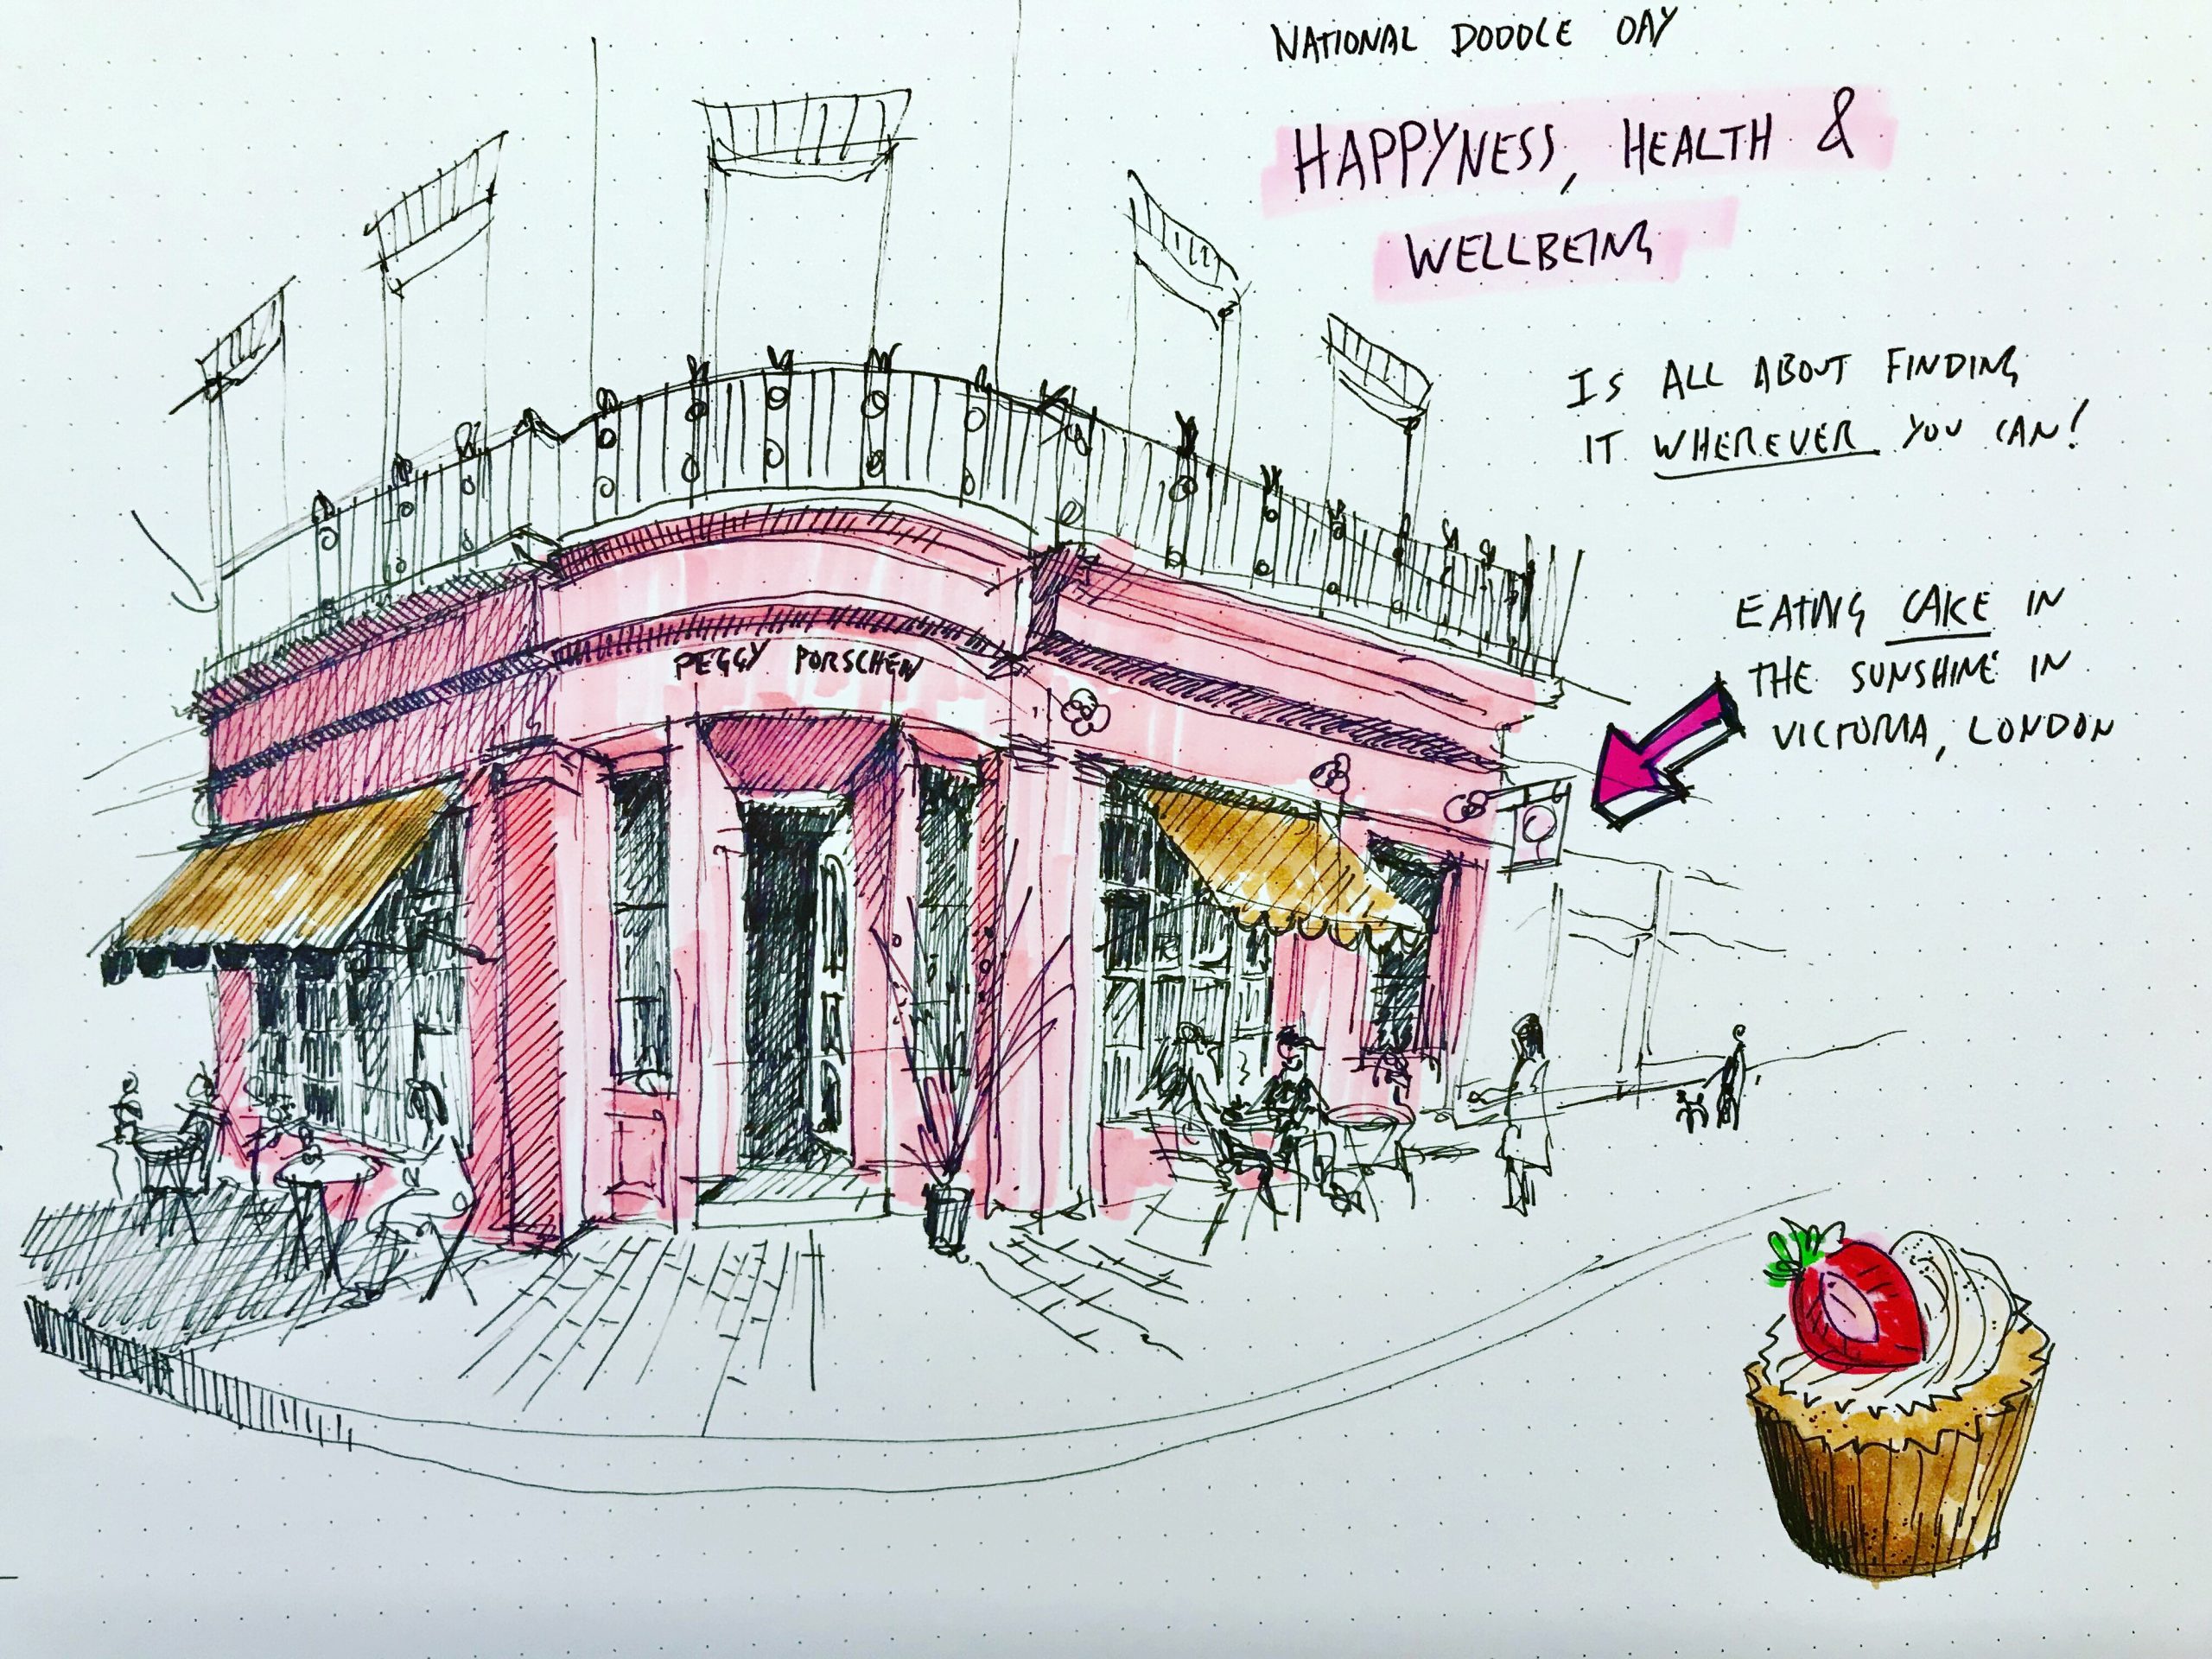 NATIONAL DOODLE DAY
HAPPYNESS, HEALTH &
WELLBEING
IS ALL ABOUT FINDING
IT WHEREVER YOU CAN!
EATING CAKE IN
THE SUNSHINE IN
VICTORIA, LONDON
PEGGY PORSCHEN